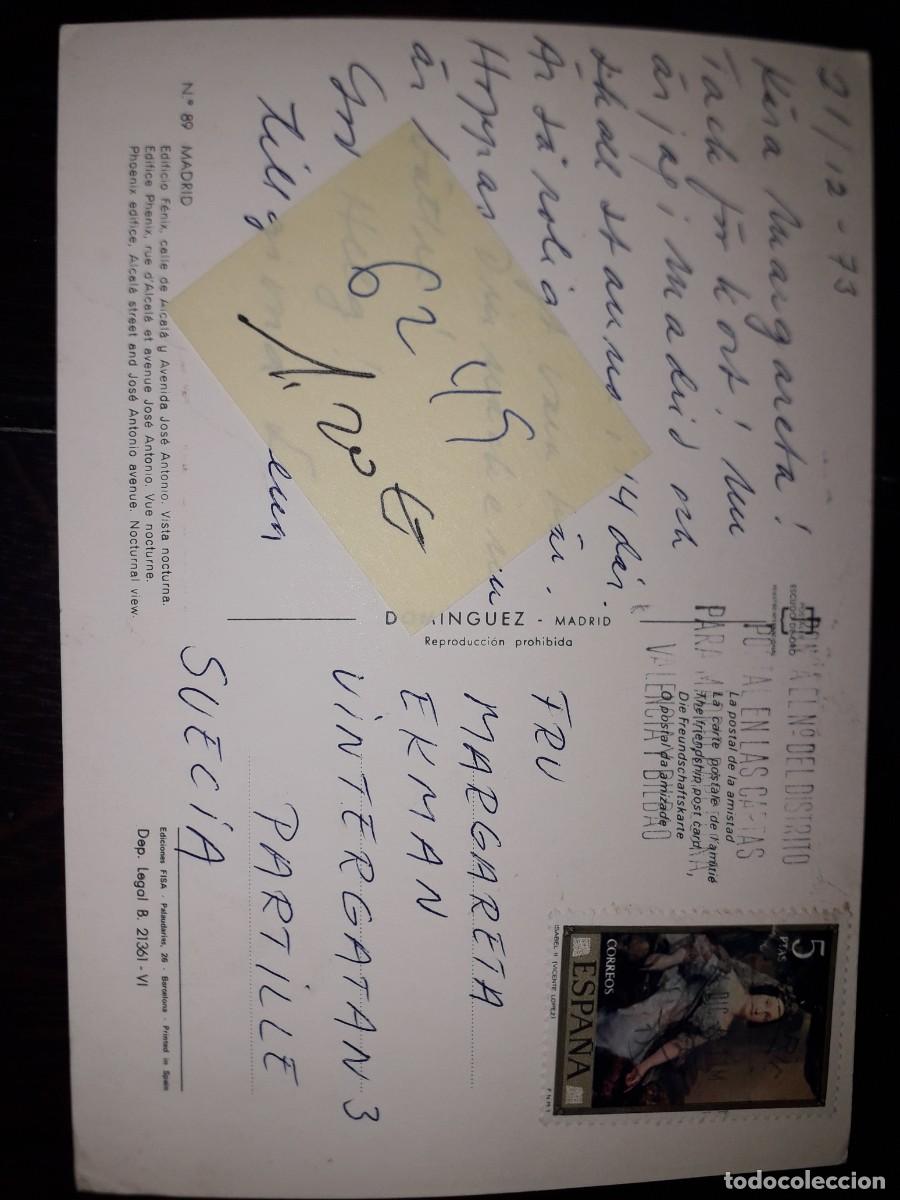 21/12-73
Kära Margareta!
Tack för kort! Nu
är jag i Madrid och
skall stanna i 14 dar.
Är så roligt här.
Hoppas Du
är
God Helg
tillönskar
6249
1.20 €
Nº 89 MADRID
Edificio Fénix, calle de Alcalá y Avenida José Antonio. Vista nocturna.
Edifice Phenix, rue d'Alcalá et avenue José Antonio. Vue nocturne.
Phoenix edifice, Alcalá street and José Antonio avenue. Nocturnal view.
DOMINGUEZ - MADRID
Reproducción prohibida
POSTAL
ESCUDO DE ORO
La postal de la amistad
La carte postale de l'amitié
The friendship post card
Die Freundschaftskarte
O postal da amizade
PONGA EL Nº DEL DISTRITO
POSTAL EN LAS CARTAS
PARA MADRID, BARCELONA,
VALENCIA Y BILBAO
5
PTAS
CORREOS
ESPAÑA
ISABEL II (VICENTE LOPEZ)
F.N.M.T.
FRU
MARGARETA
EKMAN
VINTERGATAN 3
PARTILLE
SUECIA
Ediciones FISA - Palaudarias, 26 - Barcelona - Printed in Spain
Dep. Legal B. 21361 - VI
todocoleccion